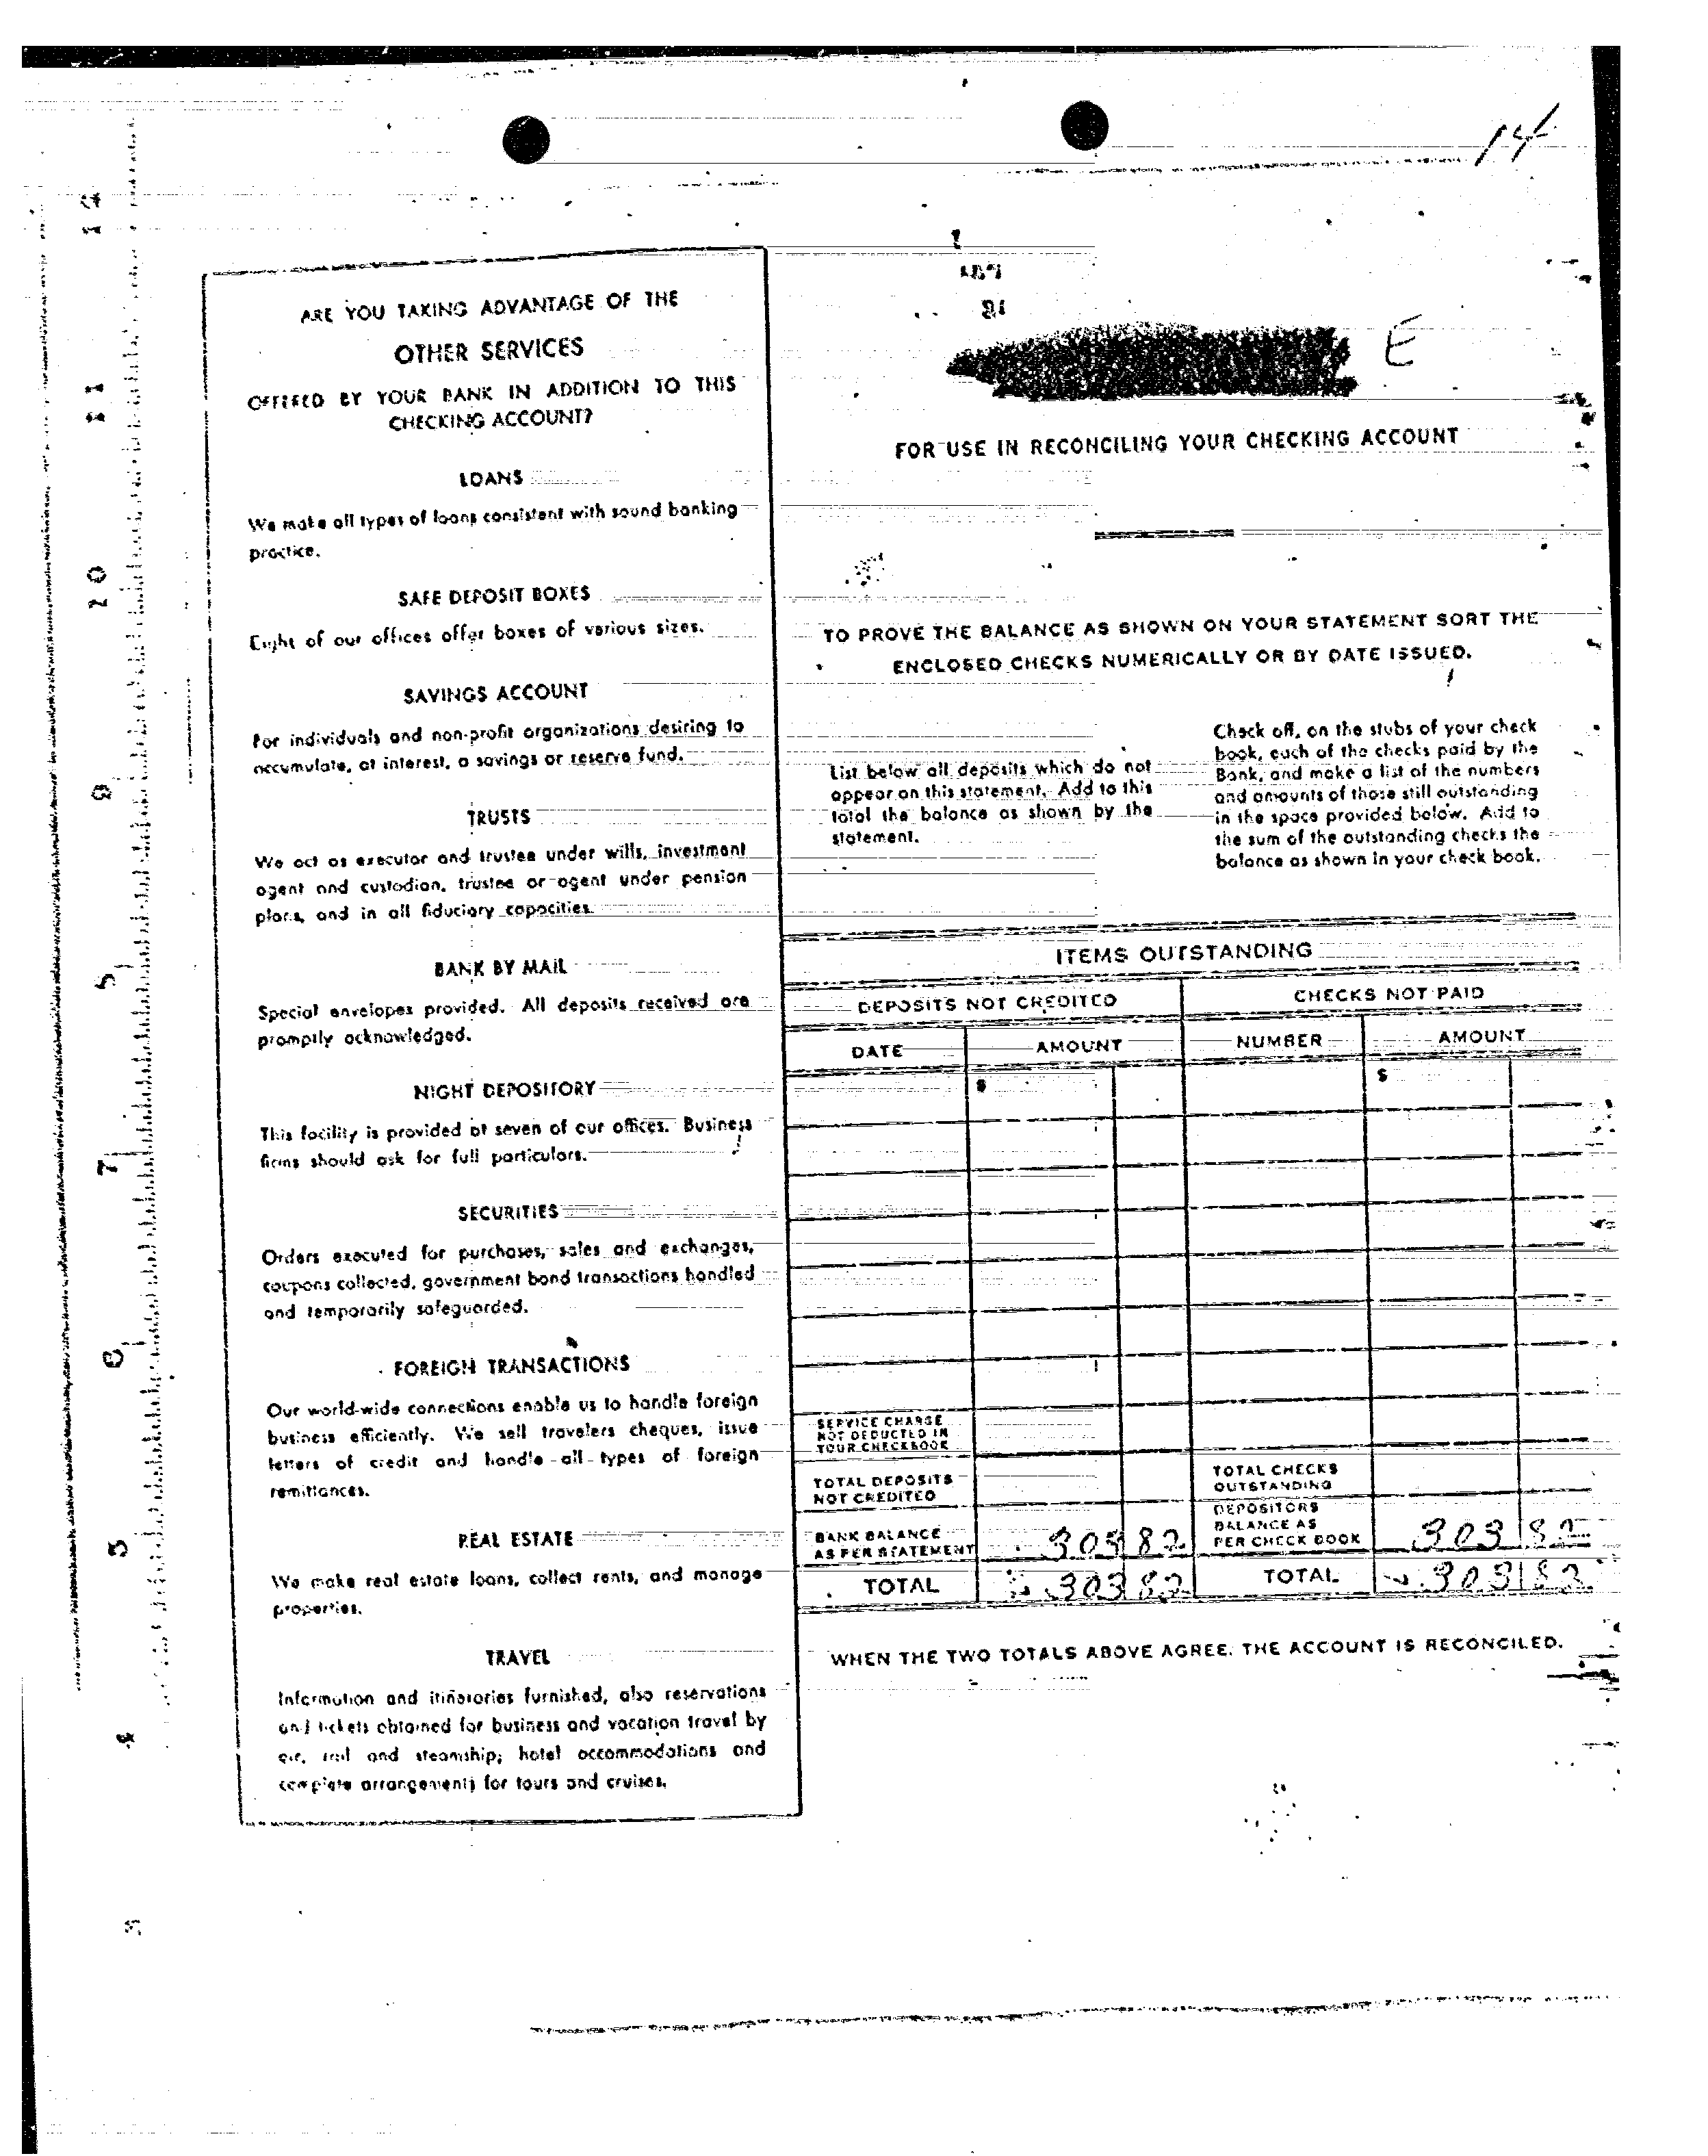 14
ARE YOU TAKING ADVANTAGE OF THE
OTHER SERVICES
OFFERED BY YOUR BANK IN ADDITION TO THIS
CHECKING ACCOUNT?
LOANS
We make all types of loans consistent with sound banking
practice.
SAFE DEPOSIT BOXES
Eight of our offices offer boxes of various sizes.
SAVINGS ACCOUNT
For individuals and non-profit organizations desiring to
accumulate, at interest, a savings or reserve fund.
TRUSTS
We act as executor and trustee under wills, investment
agent and custodian, trustee or agent under pension
plans, and in all fiduciary capacities.
BANK BY MAIL
Special envelopes provided. All deposits received are
promptly acknowledged.
NIGHT DEPOSITORY
This facility is provided at seven of our offices. Business
firms should ask for full particulars.
SECURITIES
Orders executed for purchases, sales and exchanges,
coupons collected, government bond transactions handled
and temporarily safeguarded.
FOREIGN TRANSACTIONS
Our world-wide connections enable us to handle foreign
business efficiently. We sell travelers cheques, issue
letters of credit and handle all types of foreign
remittances.
REAL ESTATE
We make real estate loans, collect rents, and manage
properties.
TRAVEL
Information and itineraries furnished, also reservations
and tickets obtained for business and vacation travel by
air, rail and steamship; hotel accommodations and
complete arrangements for tours and cruises.
E
FOR USE IN RECONCILING YOUR CHECKING ACCOUNT
TO PROVE THE BALANCE AS SHOWN ON YOUR STATEMENT SORT THE
ENCLOSED CHECKS NUMERICALLY OR BY DATE ISSUED.
List below all deposits which do not
appear on this statement. Add to this
total the balance as shown by the
statement.
Check off, on the stubs of your check
book, each of the checks paid by the
Bank, and make a list of the numbers
and amounts of those still outstanding
in the space provided below. Add to
the sum of the outstanding checks the
balance as shown in your check book.
ITEMS OUTSTANDING
DEPOSITS NOT CREDITED CHECKS NOT PAID
DATE AMOUNT NUMBER AMOUNT
$ $
SERVICE CHARGE
NOT DEDUCTED IN
YOUR CHECKBOOK
TOTAL DEPOSITS
NOT CREDITED
TOTAL CHECKS
OUTSTANDING
BANK BALANCE
AS PER STATEMENT 303 82
DEPOSITORS
BALANCE AS
PER CHECK BOOK 303 82
TOTAL 303 82 TOTAL 303 82
WHEN THE TWO TOTALS ABOVE AGREE, THE ACCOUNT IS RECONCILED.